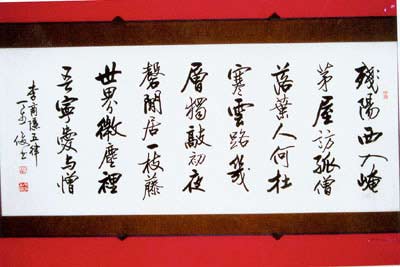 殘陽西入崦
茅屋訪孤僧
落葉人何在
寒雲路幾
層獨敲初夜
磬閒居一枝藤
世界微塵裡
吾寧愛与憎
李商隱五律